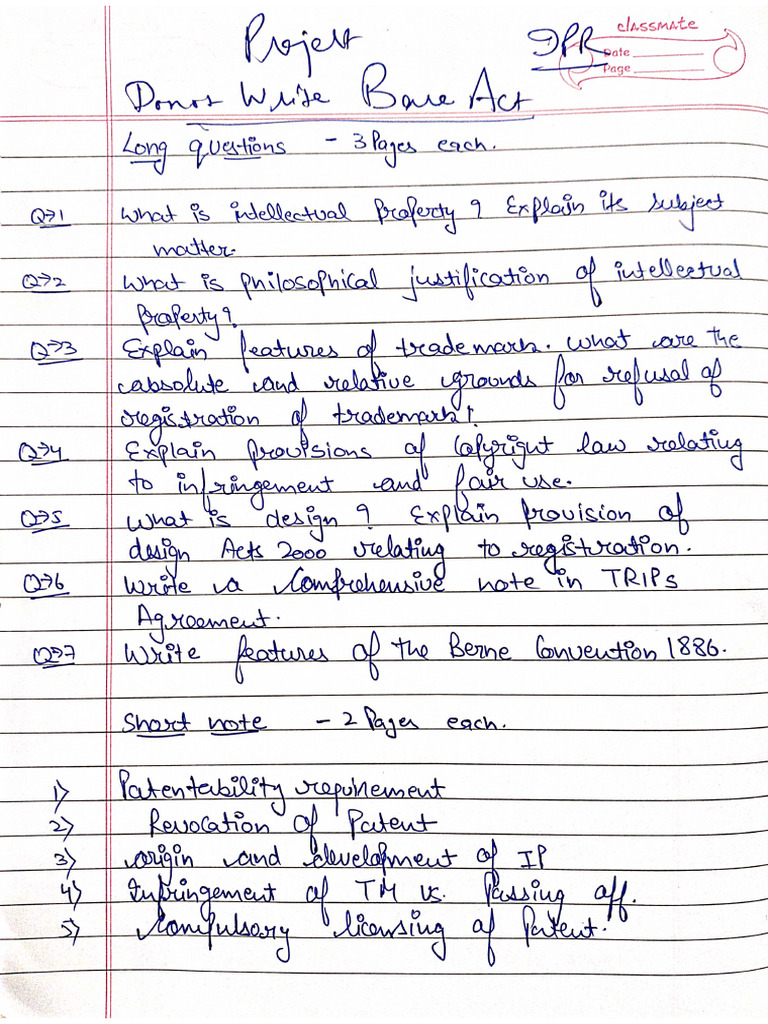 Project
IPR
classmate
Date
Page
Donot Write Bare Act
Long questions - 3 Pages each.
Q→1 What is intellectual property? Explain its subject
matter.
Q→2 What is philosophical justification of intellectual
property?
Q→3 Explain features of trademark. What are the
absolute and relative grounds for refusal of
registration of trademark?
Q→4 Explain provisions of Copyright law relating
to infringement and fair use.
Q→5 What is design? Explain provision of
design Acts 2000 relating to registration.
Q→6 Write a Comprehensive note in TRIPs
Agreement.
Q→7 Write features of the Berne Convention 1886.
Short note - 2 Pages each.
1) Patentability requirement
2) Revocation of Patent
3) origin and development of IP
4) Infringement of TM vs. Passing off.
5) Compulsory licensing of Patent.